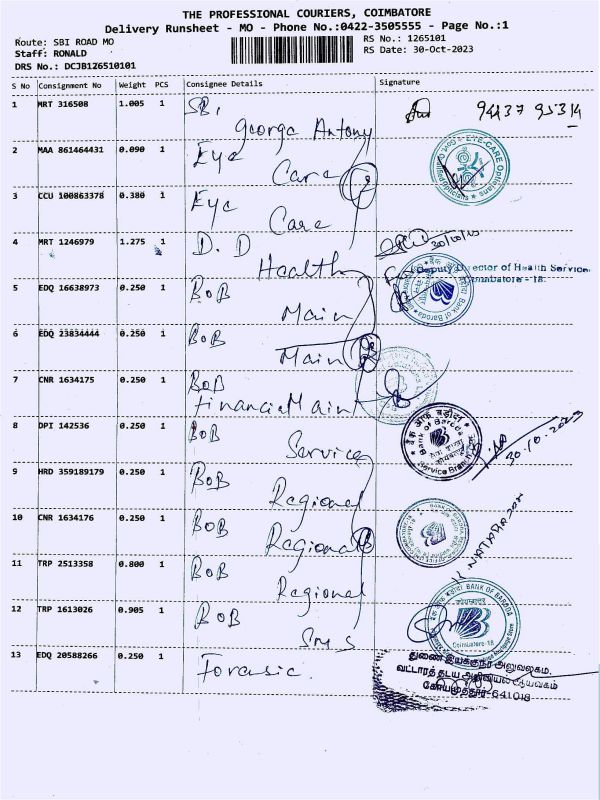 THE PROFESSIONAL COURIERS, COIMBATORE
Delivery Runsheet - MO - Phone No.:0422-3505555 - Page No.:1
Route: SBI ROAD MO
RS No.: 1265101
Staff: RONALD
RS Date: 30-Oct-2023
DRS No.: DCJB126510101
S No Consignment No Weight PCS Consignee Details Signature
1 MRT 316508 1.005 1 SBI 94437 95314
George Antony
2 MAA 861464431 0.090 1 Eye
Care
EYE-CARE Opticians
3 CCU 100863378 0.380 1 Eye
Care
4 MRT 1246979 1.275 1 D.D 30/10/23
Health
Deputy Director of Health Service
Coimbatore - 18.
5 EDQ 16638973 0.250 1 BOB
Main
Bank of Baroda
6 EDQ 23834444 0.250 1 BOB
Main
7 CNR 1634175 0.250 1 BOB
Financia Main
8 DPI 142536 0.250 1 BOB
Service
बैंक ऑफ़ बड़ौदा
Bank of Baroda
Service Branch
30.10.2023
9 HRD 359189179 0.250 1 BOB
Regional
10 CNR 1634176 0.250 1 BOB
Regional
NATARAJAN
11 TRP 2513358 0.800 1 BOB
Regional
12 TRP 1613026 0.905 1 BOB
SMS
BANK OF BARODA
Coimbatore-18
13 EDQ 20588266 0.250 1 Forensic
துணை இயக்குநர் அலுவலகம்,
வட்டாரத் தடய அறிவியல் ஆய்வகம்
கோயமுத்தூர்-641018